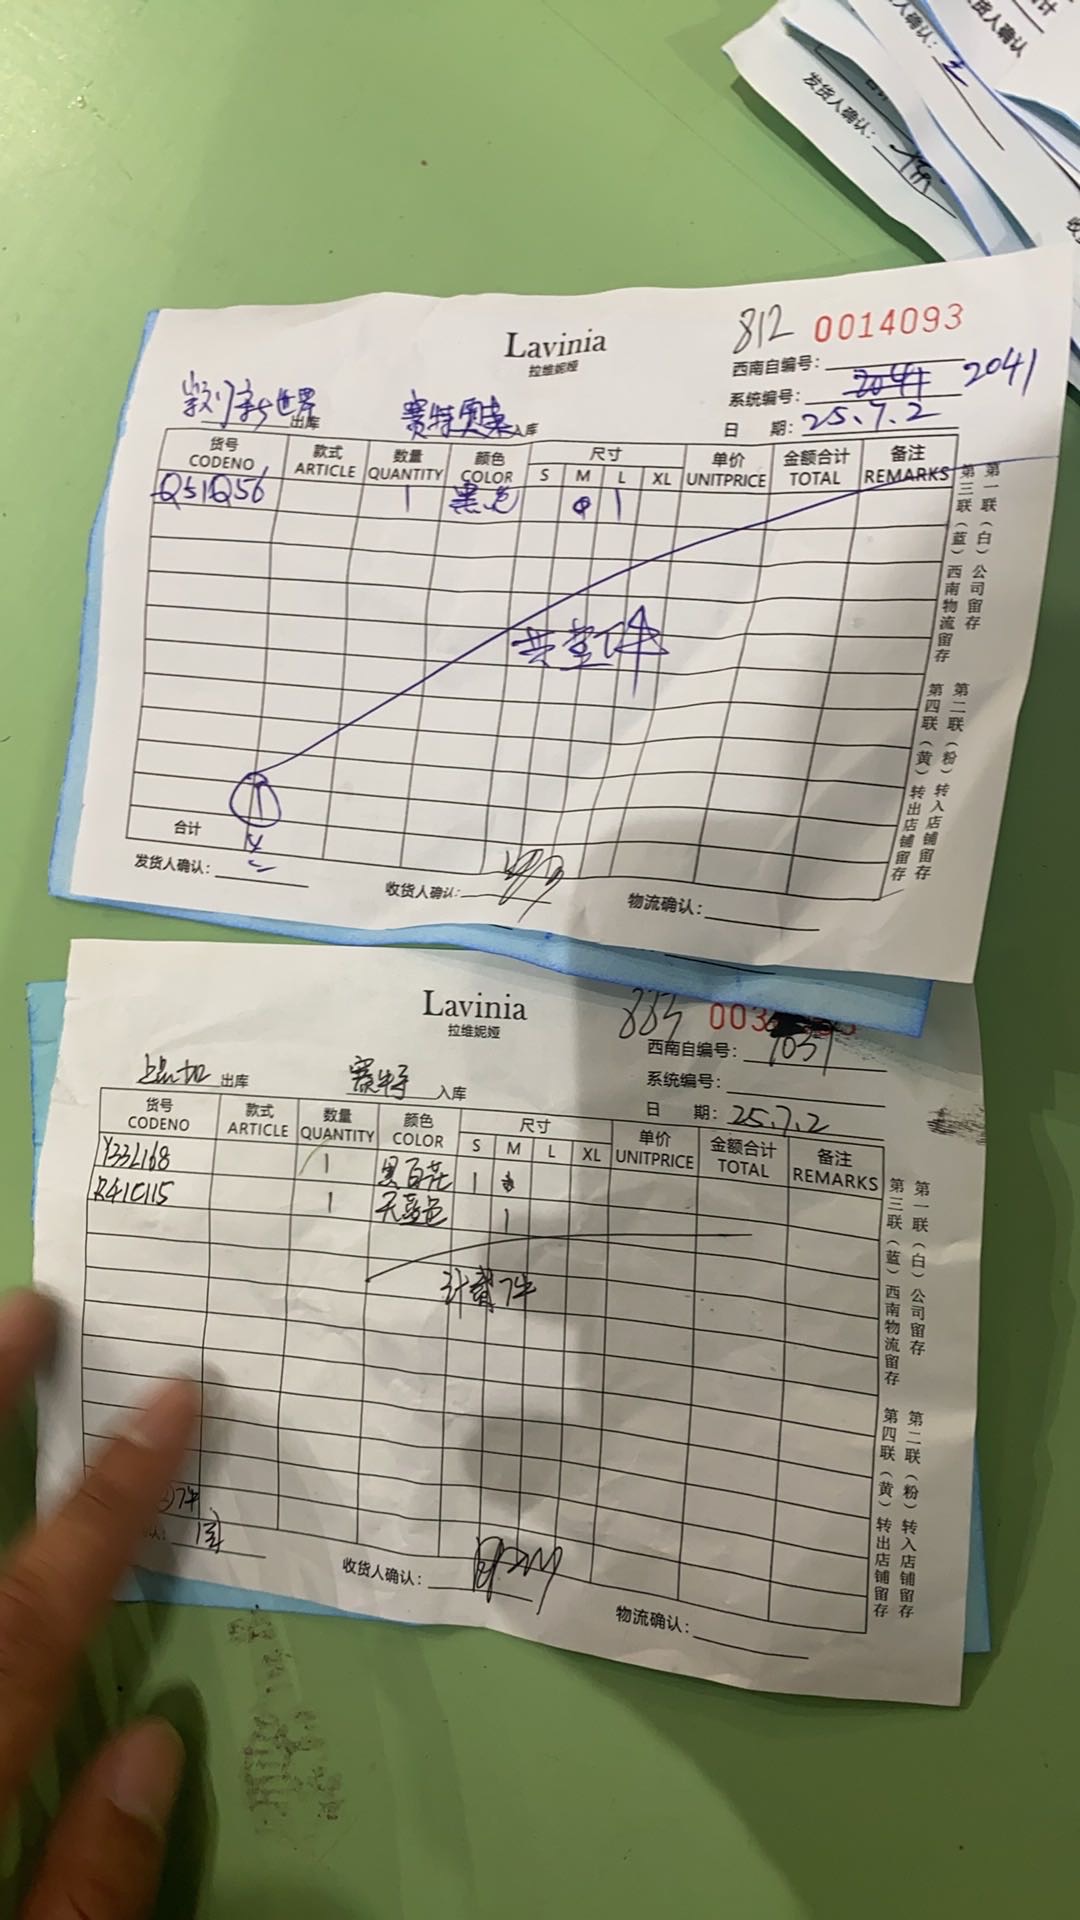 货人确认
人确认：
发货人确认：
Lavinia
拉维妮娅
812 0014093
西南自编号：
系统编号： 2041
日 期：25.7.2
新世界 出库 赛特奥莱 入库
货号 款式 数量 颜色 尺寸 单价 金额合计 备注
CODENO ARTICLE QUANTITY COLOR S M L XL UNITPRICE TOTAL REMARKS
Q51Q56 1 黑色 1
共壹件
合计
发货人确认：
收货人确认：
物流确认：
第一联（白）公司留存
第三联（蓝）西南物流留存
第二联（粉）转入店铺留存
第四联（黄）转出店铺留存
Lavinia
拉维妮娅
883 003
西南自编号：
系统编号：
日 期：25.7.2
出库 赛特 入库
货号 款式 数量 颜色 尺寸 单价 金额合计 备注
CODENO ARTICLE QUANTITY COLOR S M L XL UNITPRICE TOTAL REMARKS
Y33L168 1 黑白花 1
R41C115 1 天蓝色 1
收货人确认：
物流确认：
第一联（白）公司留存
第三联（蓝）西南物流留存
第二联（粉）转入店铺留存
第四联（黄）转出店铺留存